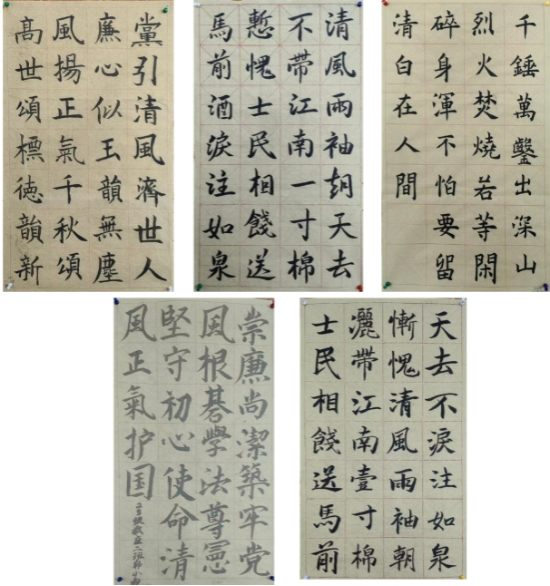 黨引清風濟世人
廉心似玉韻無塵
風揚正氣千秋頌
髙世頌標徳韻新
清風兩袖朝天去
不帶江南一寸棉
慙愧士民相餞送
馬前酒淚注如泉
千錘萬鑿出深山
烈火焚燒若等閑
碎身渾不怕要留
清白在人間
崇廉尚潔築牢党
風根碁學法尊憲
堅守初心使命清
風正氣护国
天去不淚注如泉
慚愧清風兩袖朝
灑帶江南壹寸棉
士民相餞送馬前